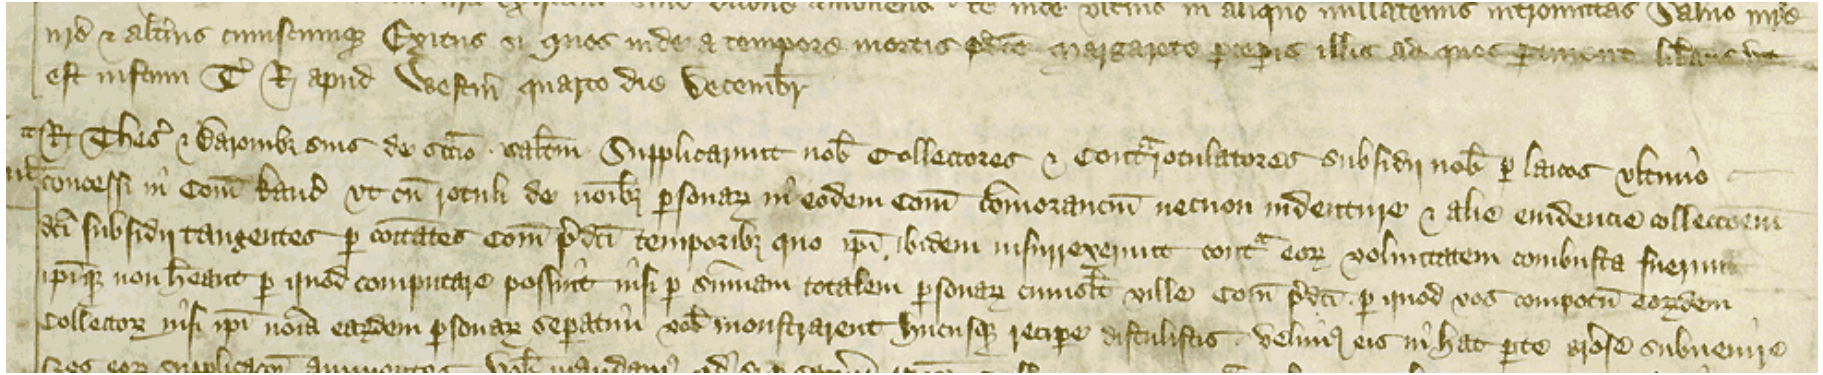 ulterius in aliquo nullatenus intromittas Salvo
nrd & alterius cuiuscumque Exitus si quos inde a tempore mortis pdce Margarete perceperis illis ad quos pertinent
est iustum T R apud Westm quarto die Decembr
R Thes & Baronibz suis de sccio saltm Supplicarunt nob Collectores & Contrarotulatores subsidii nob p laicos ultimo
concessi in Com Kanc ut cu rotuli de noibz psonarz in eodem Com comoranciu necnon indenture & alie evidencie colleccoem
dci subsidii tangentes p coitates Com pdci temporibz quo ipi ibidem insurrexerunt contra eorz voluntatem combusta fuerunt
ipiqz non heant p quod computare possint nisi p summam totalem psonarz cuiuslt ville Com pdci p quod vos compotu eorzdem
Collectorz nisi ipi noia earzdem psonarz sepatim vob monstrarent hucusqz recipe distulistis velim eis in hac pte subvenire
supplicacoi vob